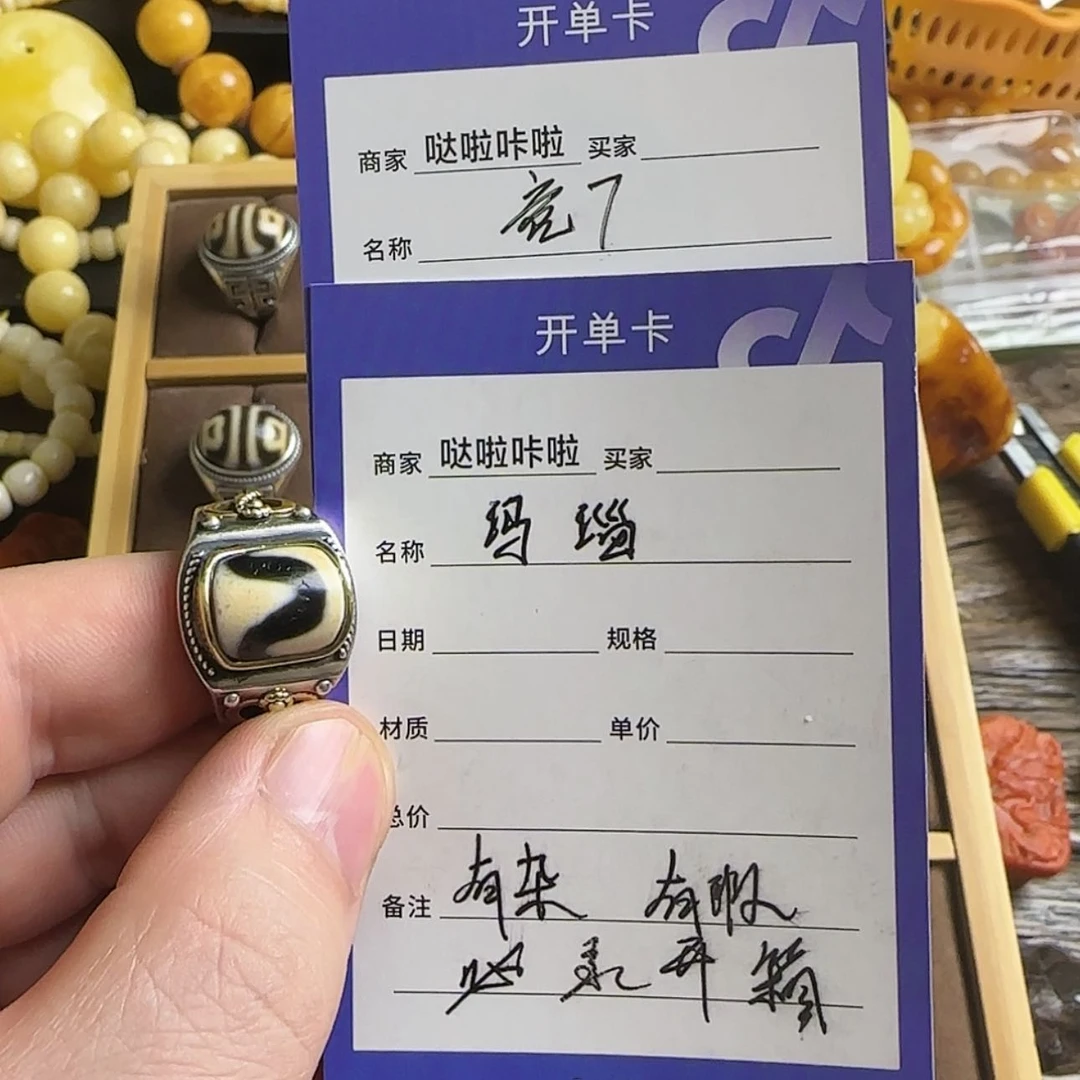 开单卡
商家 哒啦咔啦 买家
名称
开单卡
商家 哒啦咔啦 买家
名称 玛瑙
日期 规格
材质 单价
总价
备注 有杂 有瑕
必录开箱